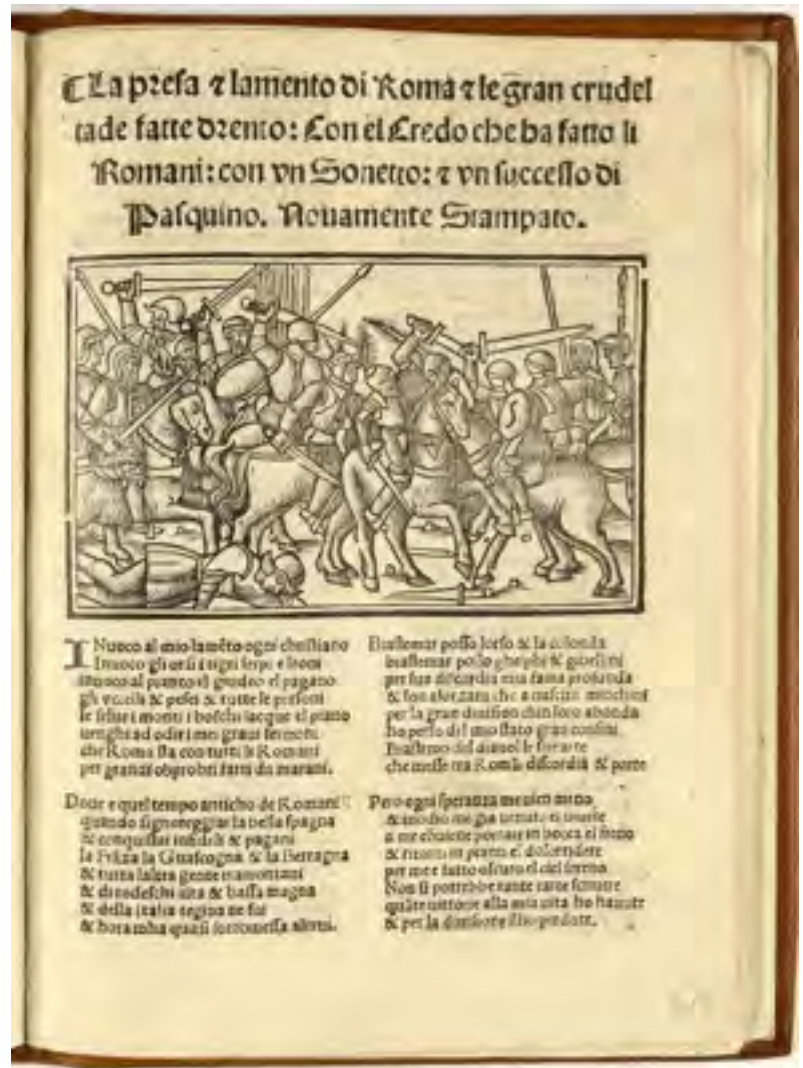 La presa ⁊ lamento di Roma ⁊ le gran crudel
tade fatte drento: Con el Credo che ha fatto li
Romani: con vn Sonetto: ⁊ vn successo di
Pasquino. Nouamente Stampato.
INuoco al mio lamẽto ogni christiano
Inuoco gli orsi i tigri serpi e leoni
inuoco al pianto el giudeo el pagano
gli vccelli & pesci & tutte le persone
le selue i monti i boschi lacque el piano
uenghi ad odir i mei graui sermoni
che Roma sta con tutti li Romani
per grandi obprobri fatti da marani.
Doue e quel tempo anticho de Romani
quando signoreggiai la bella spagna
& conquistai infideli & pagani
la Friza la Guascogna & la Bertagna
& tutta laltra gente tramontani
& di todeschi alta & bassa magna
& della italia regina ne fui
& hora mha quasi sottomessa altrui.
Biastemar posso lorso & la colonda
biastemar posso ghelphi & gibellini
per sua discordia mia fama profonda
& son
per la gran diuision chin loro abonda
ho perso dil mio stato gran confini
Biastemo del diauol le sue arte
che messe tra Roma discordia & parte
Pero ogni speranza me vien meno
a me conuiene portare in bocca el freno
per me e fatto oscuro el ciel sereno
Non si potrebbe tante carte scriuere
quãte uittorie alla mia vita ho hauute
& per la diuisione lho perdute.